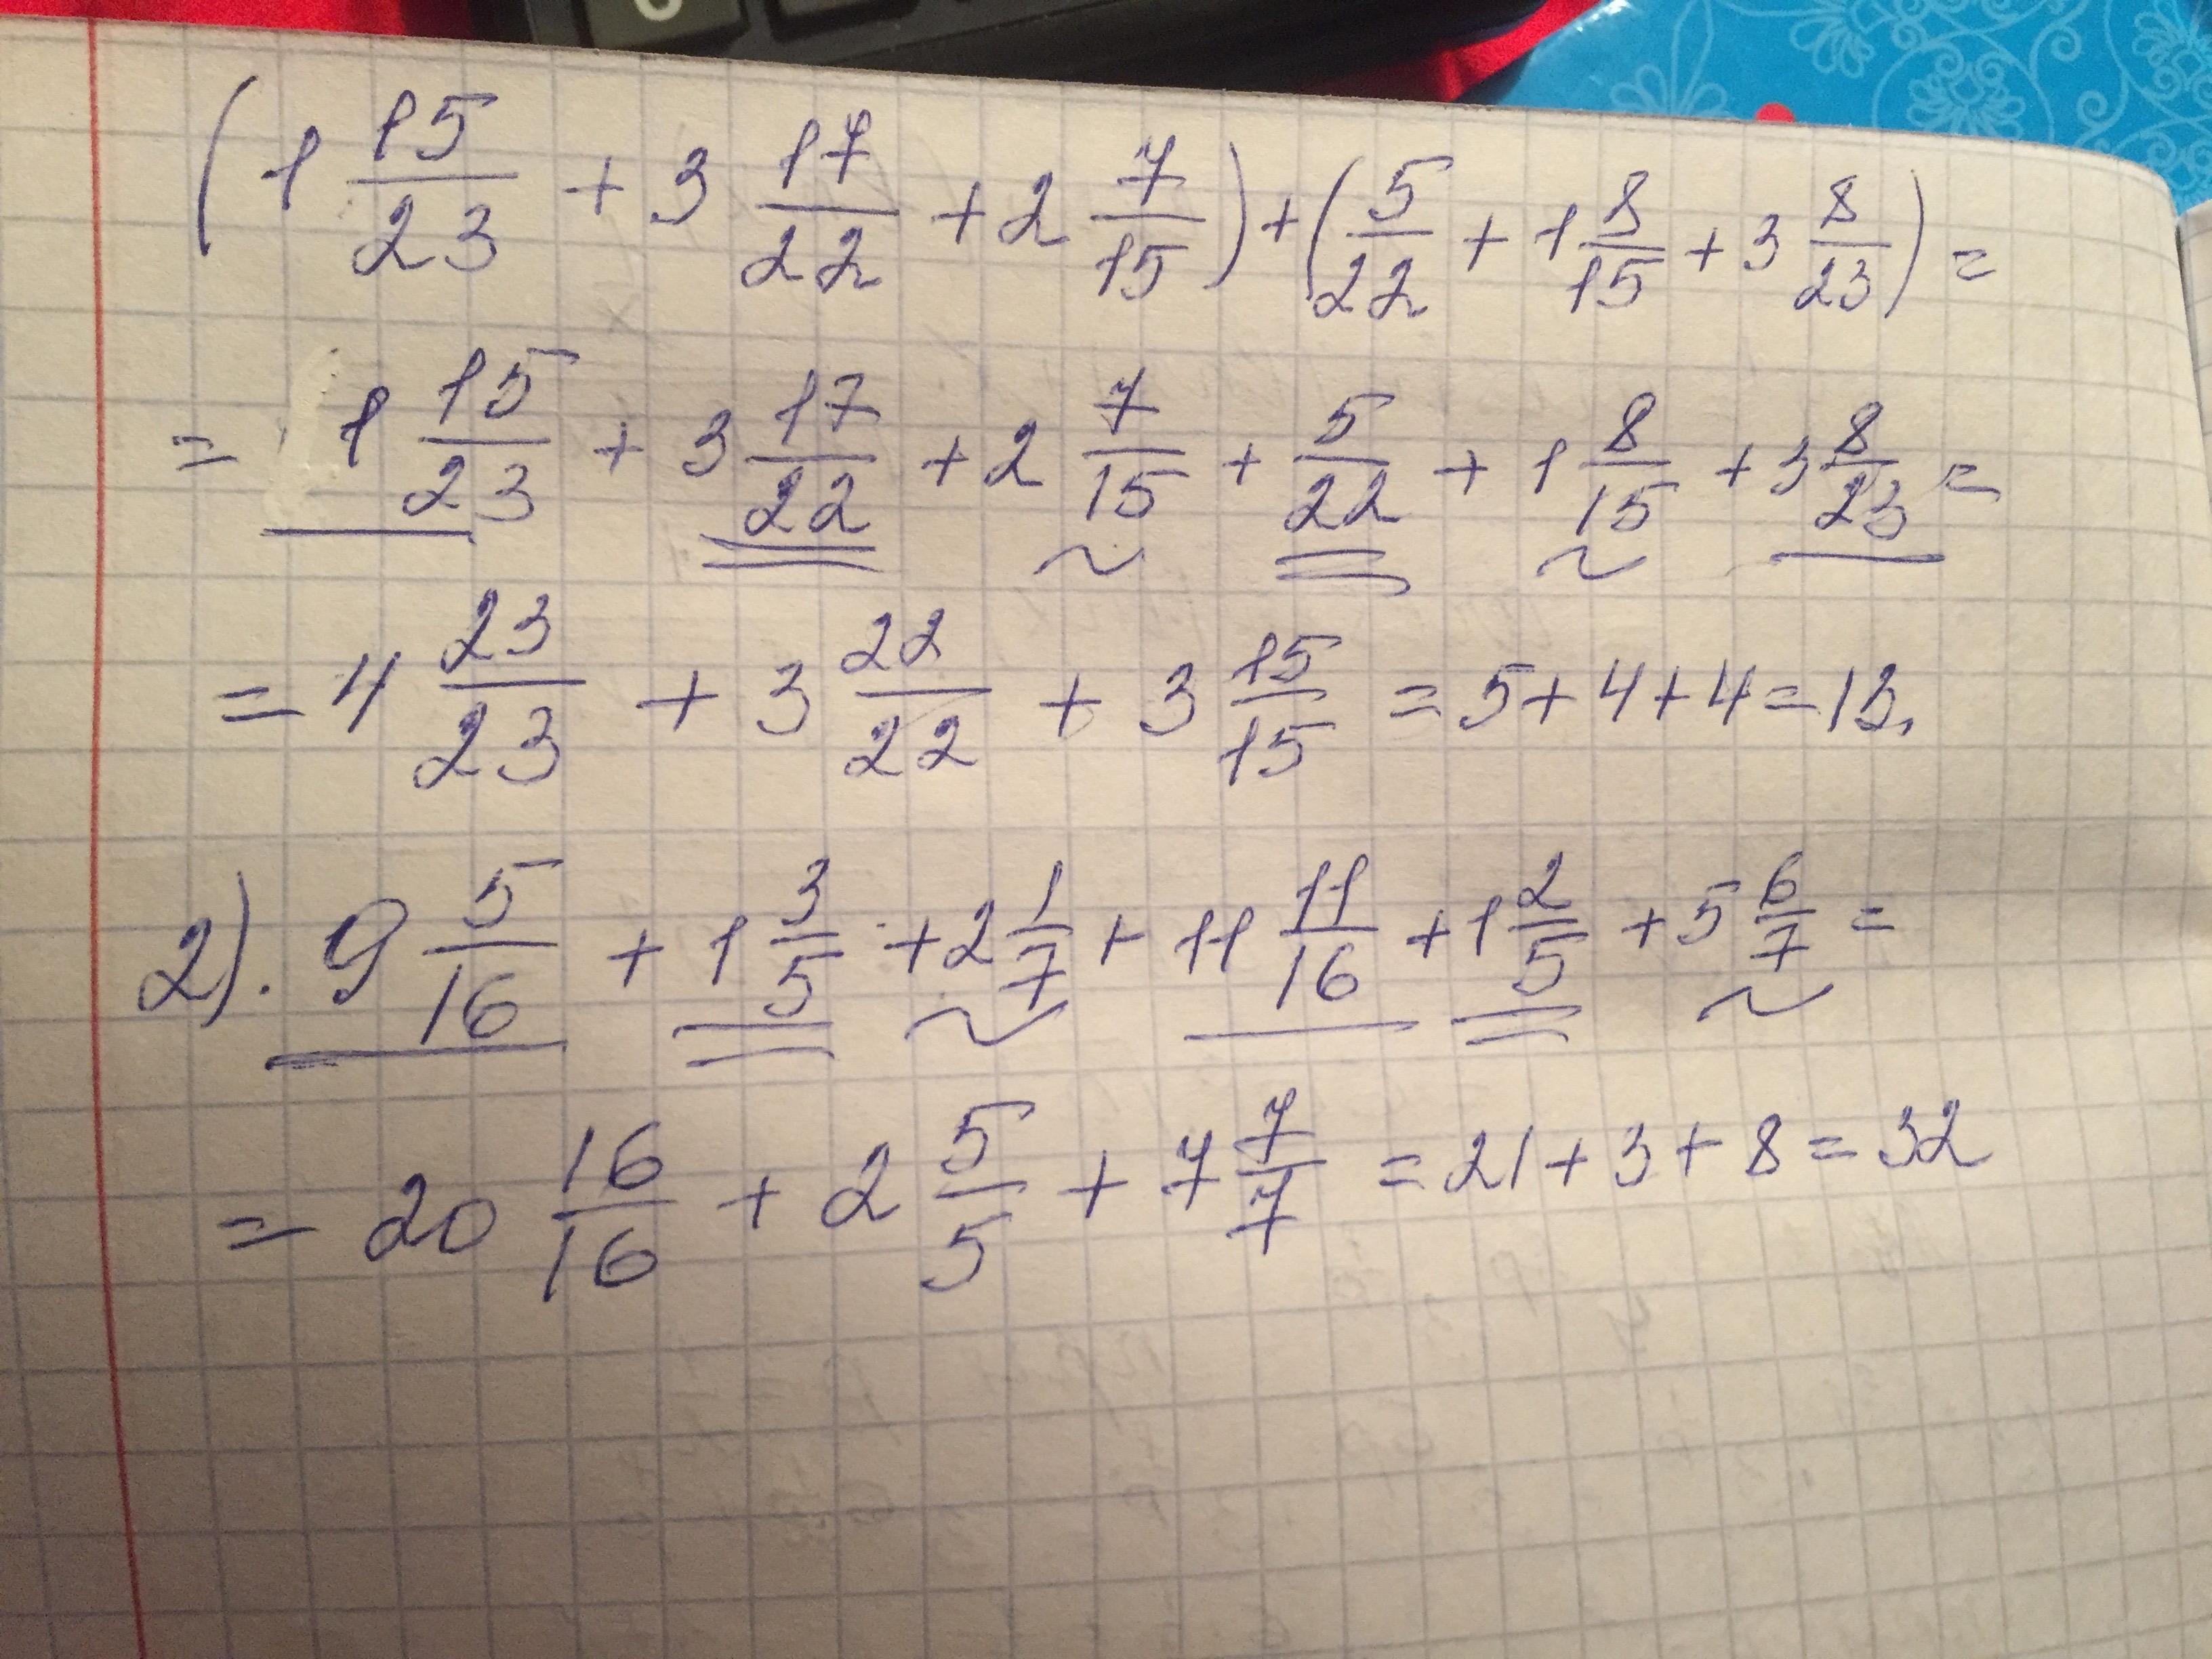 (1 15/23 + 3 17/22 + 2 7/15) + (5/22 + 1 8/15 + 3 8/23) =
= 1 15/23 + 3 17/22 + 2 7/15 + 5/22 + 1 8/15 + 3 8/23 =
= 4 23/23 + 3 22/22 + 3 15/15 = 5 + 4 + 4 = 13.
2). 9 5/16 + 1 3/5 + 2 1/7 + 11 11/16 + 1 2/5 + 5 6/7 =
= 20 16/16 + 2 5/5 + 7 7/7 = 21 + 3 + 8 = 32